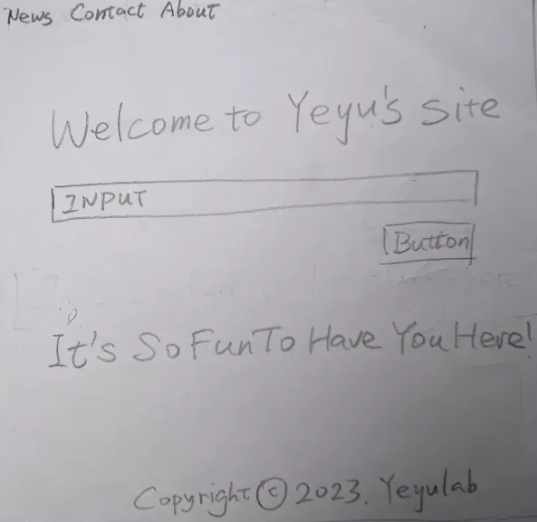 News Contact About
Welcome to Yeyu's site
INPUT
Button
It's So Fun To Have You Here!
Copyright © 2023. Yeyulab